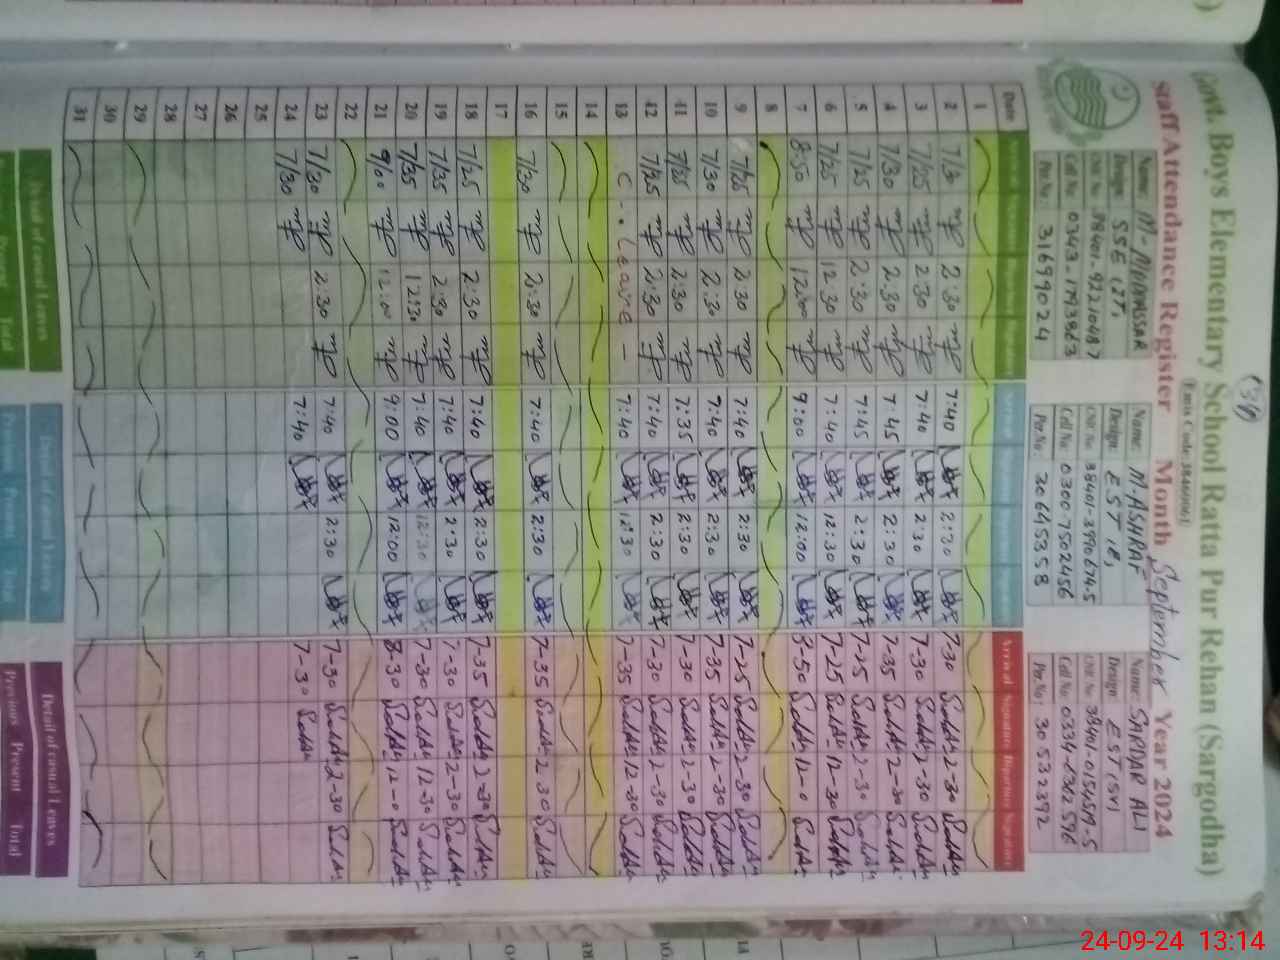 (38)
Govt. Boys Elementary School Ratta Pur Rehan (Sargodha)
Emis Code:38460061
Staff Attendance Register Month September Year 2024
Name: M-MUDASSAR Name: M ASHRAF Name: SARDAR ALI
Design: SSE (IT) Design: EST (E) Design: EST (SV)
CNIC No: 38401-9221048-7 CNIC No: 38401-3990674-5 CNIC No: 38401-0154519-5
Cell No: 0343-1793863 Cell No: 0300-7502456 Cell No: 0334-6362596
Per.No: 31699024 Per.No: 30645358 Per.No: 30532392
Date Arrival Signature Departure Signature Arrival Signature Departure Signature Arrival Signature Departure Signature
1
2 7/30 2:30 7:40 2:30 7-30 2-30
3 7/25 2:30 7:40 2:30 7-30 2-30
4 7/30 2:30 7:45 2:30 7-35 2-30
5 7/25 2:30 7:45 2:30 7-25 2-30
6 7/25 12:30 7:40 12:30 7-25 12-30
7 8:50 12:00 9:00 12:00 8-50 12-0
8
9 7/25 2:30 7:40 2:30 7-25 2-30
10 7/30 2:30 7:40 2:30 7-35 2-30
11 7/25 2:30 7:35 2:30 7-30 2-30
12 7/25 2:30 7:40 2:30 7-30 2-30
13 C. Leave 7:40 12:30 7-35 12-30
14
15
16 7/30 2:30 7:40 2:30 7-35 2-30
17
18 7/25 2:30 7:40 2:30 7-35 2-30
19 7/35 2:30 7:40 2:30 7-30 2-30
20 7/35 12:30 7:40 12:30 7-30 12-30
21 9/00 12:00 9:00 12:00 8-30 12-0
22
23 7/30 2:30 7:40 2:30 7-30 2-30
24 7/30 7:40 7-30
25
26
27
28
29
30
31
Detail of casual Leaves Detail of casual Leaves Detail of casual Leaves
Present Total Previous Present Total Previous Present Total
24-09-24 13:14